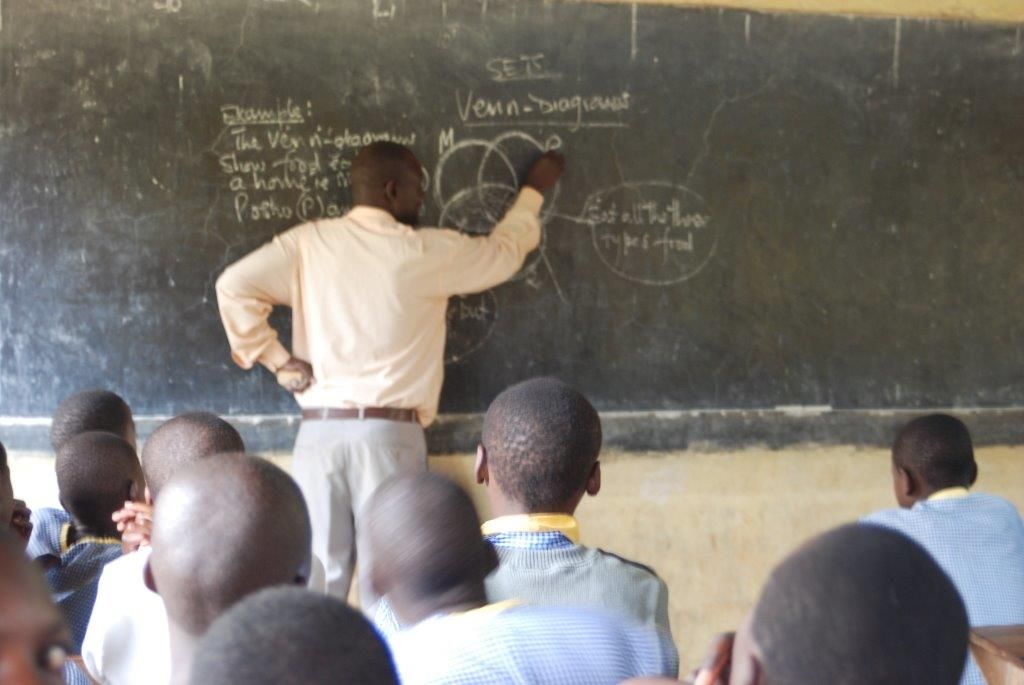 SETS
Venn-Diagrams
Example:
The Venn-diagramm
Show food
a home
Posho (P)
M
P
Eat all the three
types food
but